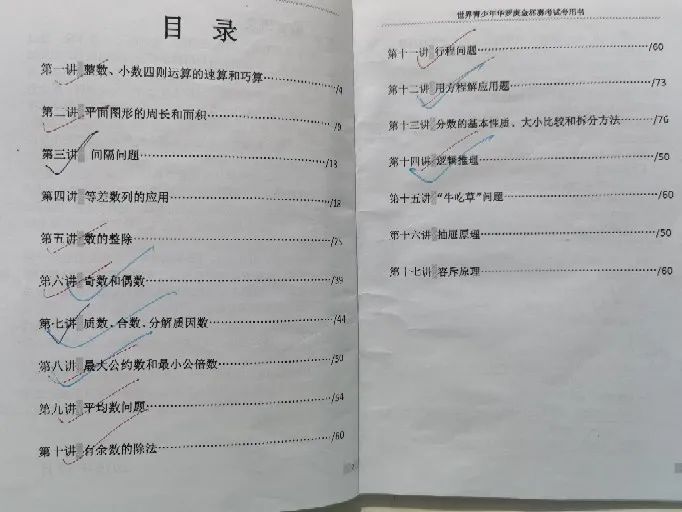 目 录
第一讲 整数、小数四则运算的速算和巧算/4
第二讲 平面图形的周长和面积/9
第三讲 间隔问题/13
第四讲 等差数列的应用/18
第五讲 数的整除/25
第六讲 奇数和偶数/39
第七讲 质数、合数、分解质因数/44
第八讲 最大公约数和最小公倍数/50
第九讲 平均数问题/54
第十讲 有余数的除法/60
世界青少年华罗庚金杯赛考试专用书
第十一讲 行程问题/60
第十二讲 用方程解应用题/73
第十三讲 分数的基本性质、大小比较和拆分方法/76
第十四讲 逻辑推理/50
第十五讲 “牛吃草”问题/60
第十六讲 抽屉原理/50
第十七讲 容斥原理/60